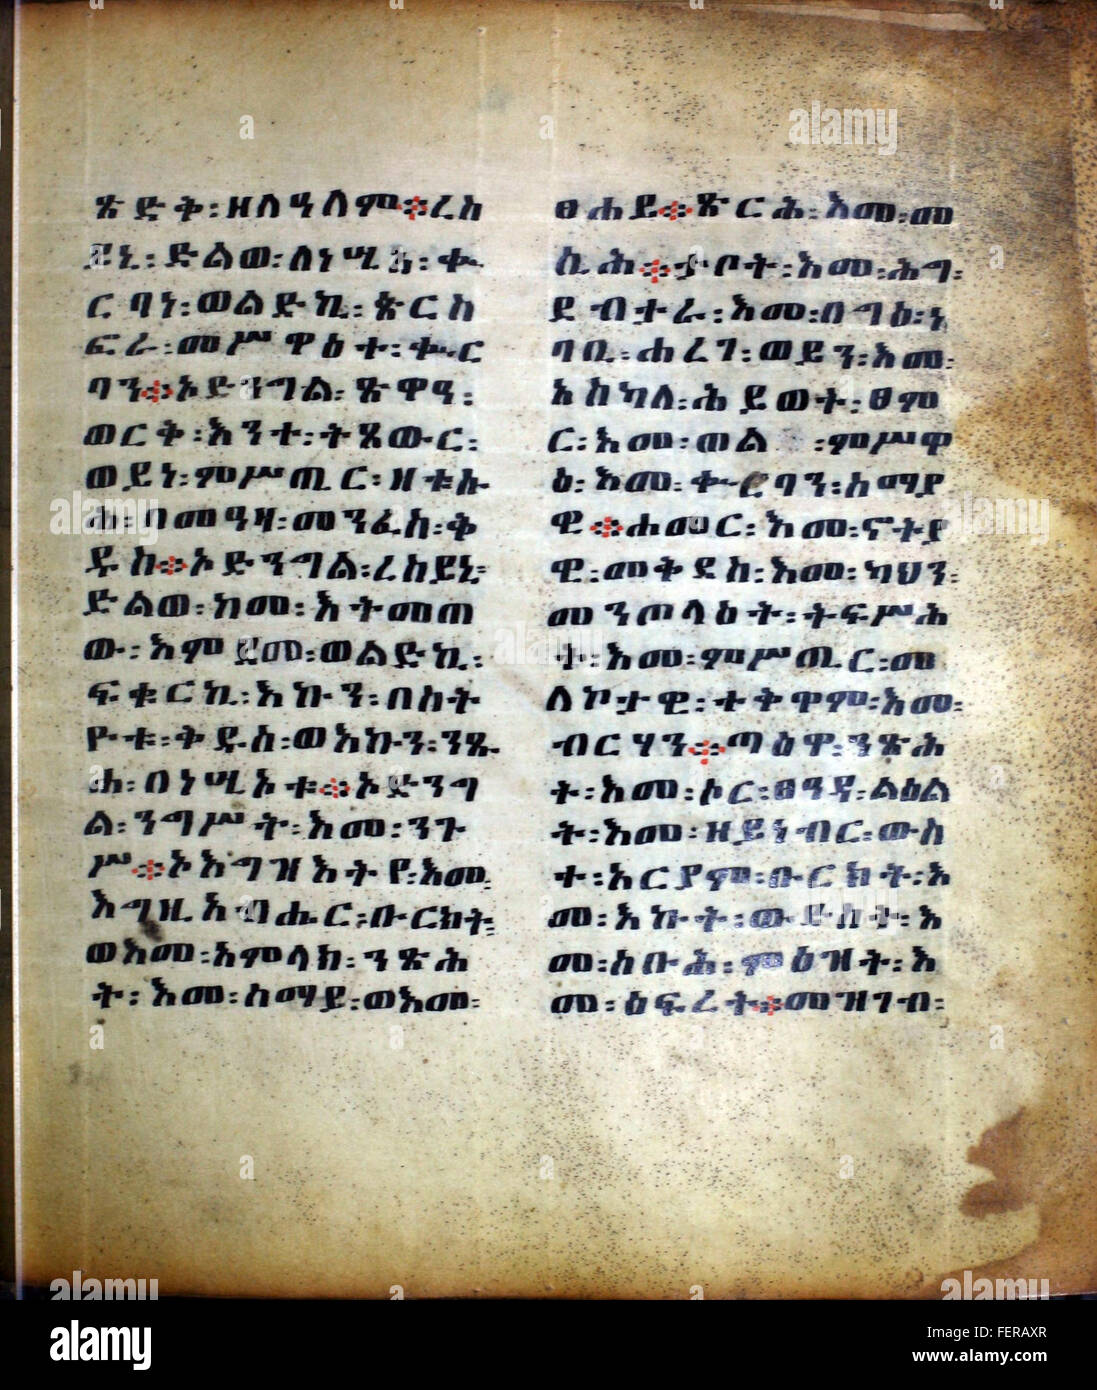 ጼድቅ፡ዘለዓለም፨ረከ
ይኒ፡ድልወ፡ለነሢእ፡ቊ
ርባነ፡ወልድኪ፡
ፍራ፡መሥዋዕተ፡ቊር
ባን፨ኦድንግል፡ጼዋዓ፡
ወርቅ፡እንተ፡ትጸውር፡
ወይነ፡ምሥጢር፡ዘቱሱ
ሐ፡በመዓዛ፡መንፈስ፡ቅ
ዱስ፨ኦድንግል፡ረከይኒ፡
ድልወ፡ከመ፡እትመጠ
ው፡እምደመ፡ወልድኪ፡
ፍቁርኪ፡እኩን፡በስት
ዮቱ፡ቅዱስ፡ወእኩን፡ንጹ
ሐ፡በነሢኦቱ፨ኦድንግ
ል፡ንግሥት፡እመ፡ንጉ
ሥ፨ኦእግዝእትየ፡እመ፡
እግዚአብሔር፡ቡርክት፡
ወእመ፡አምላክ፡ንጽሕ
ት፡እመ፡ሰማይ፡ወእመ፡
ፀሐይ፨ጽርሕ፡እመ፡መ
ሲሕ፨ታቦት፡እመ፡ሕግ፡
ደብተራ፡እመ፡በግዕ፡ነ
ባቢ፡ሐረገ፡ወይን፡እመ፡
አስካለ፡ሕይወት፡ፀም
ር፡እመ፡ጠል፡ምሥዋ
ዕ፡እመ፡ቊርባን፡ሰማያ
ዊ፨ሐመር፡እመ፡ኖትያ
ዊ፡መቅደስ፡እመ፡ካህን፡
መንጦላዕት፡ትፍሥሕ
ት፡እመ፡ምሥጢር፡መ
ለኮታዊ፡ተቅዋም፡እመ፡
ብርሃን፨ጣዕዋ፡ንጽሕ
ት፡እመ፡ኦር፡ፀዓዳ፡ልዕል
ት፡እመ፡ዘይነብር፡ውስ
ተ፡አርያም፡ቡርክት፡እ
መ፡አኩት፡ውድስት፡እ
መ፡ስቡሕ፡ምዕዝት፡እ
መ፡ዕፍረት፨መዝገብ፡
alamy
Image ID: FERAXR
www.alamy.com